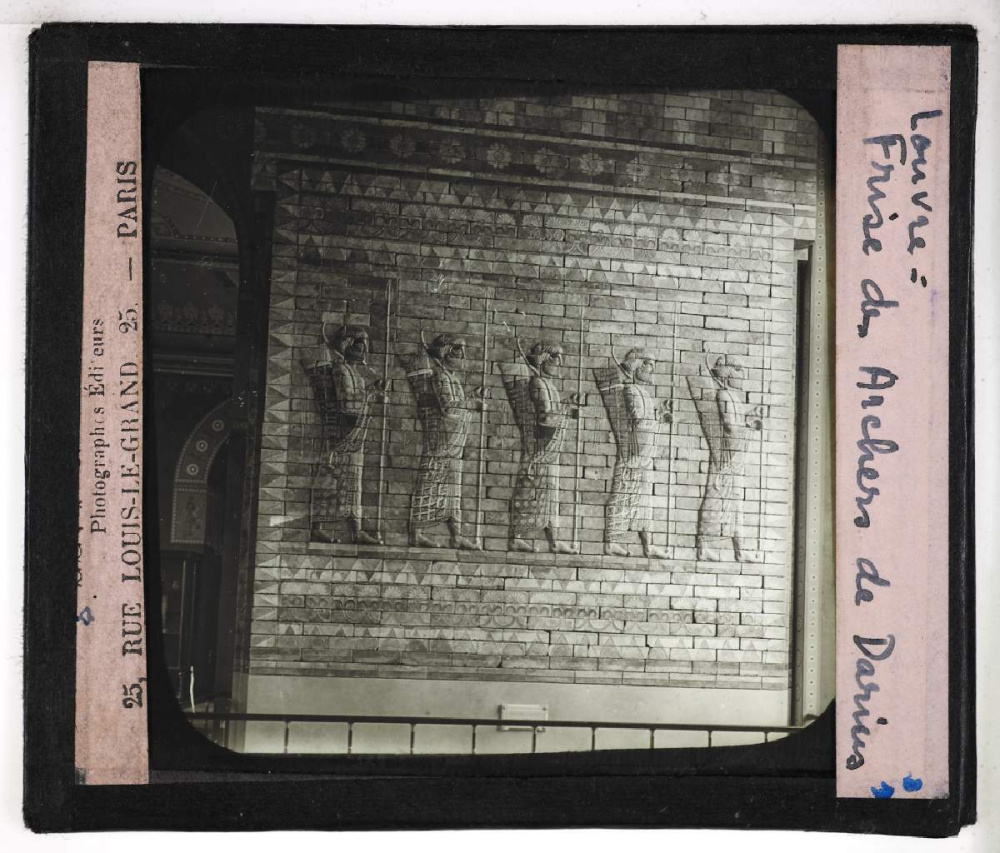 Louvre =
Frise des Archers de Darius
Photographes Éditeurs
25, RUE LOUIS-LE-GRAND 25. — PARIS